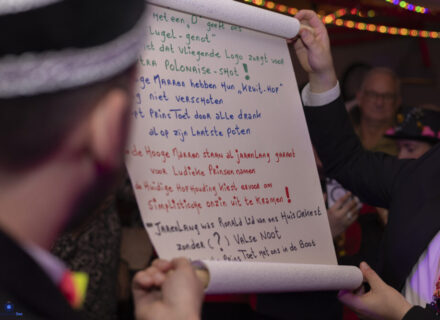 met een "O" geeft ons
"Lugel-genot"
ist dat vliegende Logo zorgt voor
TRA POLONAISE-SHOT!
ge Marren hebben Hun "Kruit-Hof"
g niet verschoten
pt Prins Toet door alle drank
al op zijn Laatste poten
de Hooge Marren staan al jarenlang garant
voor Ludieke Prinsennamen
de Huidige Hofhouding kiest ervoor om
Simplistische onzin uit te Kramen!
"Jarenlang was Ronald Lid van ons Huisorkest
zonder (?) Valse Noot
Prins Toet met ons in de Boot